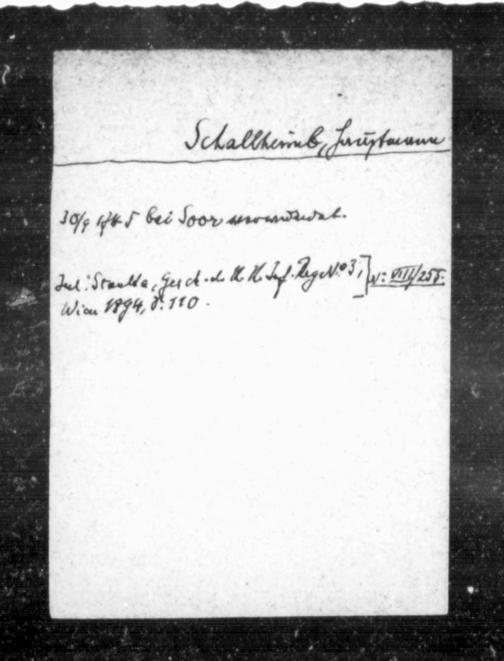 Schallheimb, Hauptmann
30/9 1745 bei Soor verwundet.
Jul: Stanka, Gesch. d. K. K. Inf. Reg. No 3,] N: VIII/255.
Wien 1894, S: 110.